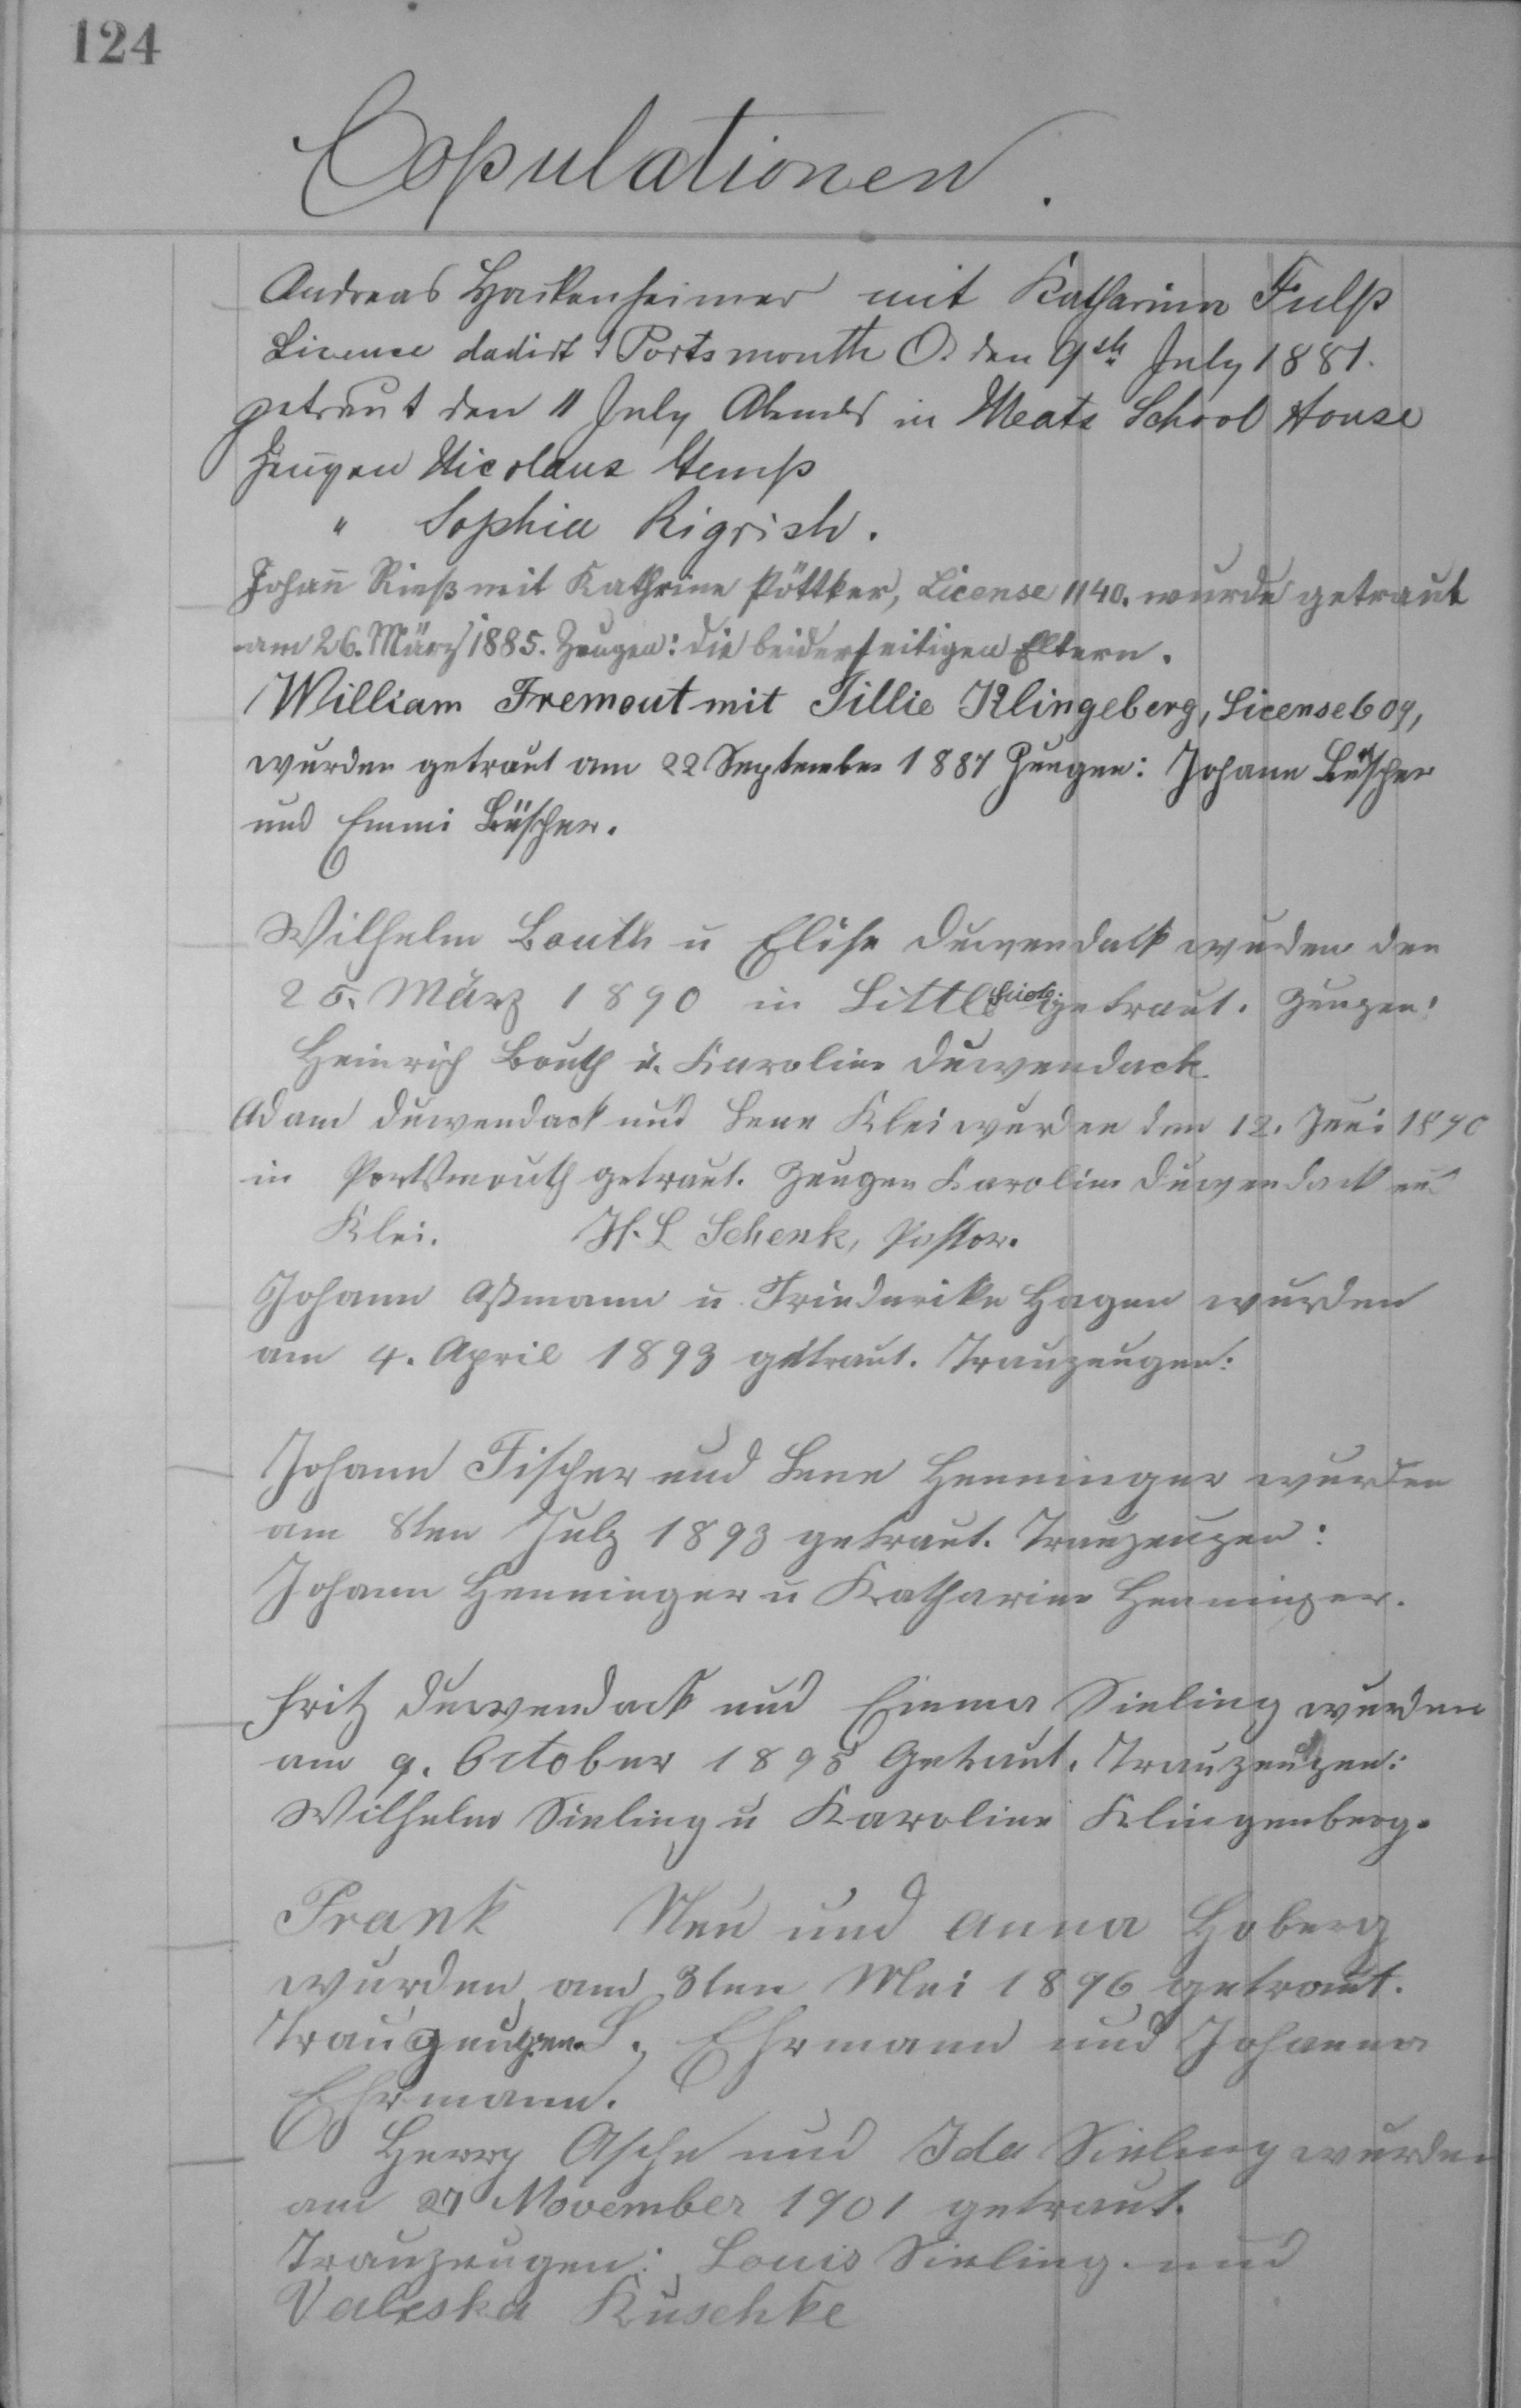 124
Copulationen.
Andreas Hackenheimer mit Katharina Fulß
License dadirt Portsmouth O. den 9th July 1881.
getraut den 11 July Abends in Meats School House
Zeugen Nicolaus Kemp
" Sophia Rigrish.
Johan̄ Rieß mit Kathrine Pöttker, License 1140. wurde getraut
am 26. März 1885. Zeugen: die beiderseitigen Eltern.
William Fremout mit Tillie Klingeberg, License 609,
wurden getraut am 22 September 1887 Zeugen: Johann Büscher
und Emmi Büscher.
Wilhelm Bouth u Elise Duwendack wurden den
25. März 1890 in Little Scioto getraut. Zeugen:
Heinrich Bouth u. Karoline Duwendack.
Adam Duwendack und Lene Klei wurden den 12. Juni 1890
in Portsmouth getraut. Zeugen Karoline Duwendack und
Klei. H. L Schenk, Pastor.
Johann Aßmann u. Friederike Hagen wurden
am 4. April 1893 getraut. Trauzeugen:
Johann Fischer und Lene Henninger wurden
am 8ten July 1893 getraut. Trauzeugen:
Johann Henninger u Katharine Henninger.
Fritz Duwendack und Emma Sieling wurden
am 9. October 1895 Getraut. Trauzeugen:
Wilhelm Sieling u Karoline Klingenberg.
Frank Neu und Anna Hoberg
wurden am 3ten Mei 1896 getraut.
Trauzeugen. L. Ehrmann und Johanna
Ehrmann.
Henry Asche und Ida Sieling wurden
am 27 November 1901 getraut.
Trauzeugen: Louis Sieling und
Valeska Kuschke